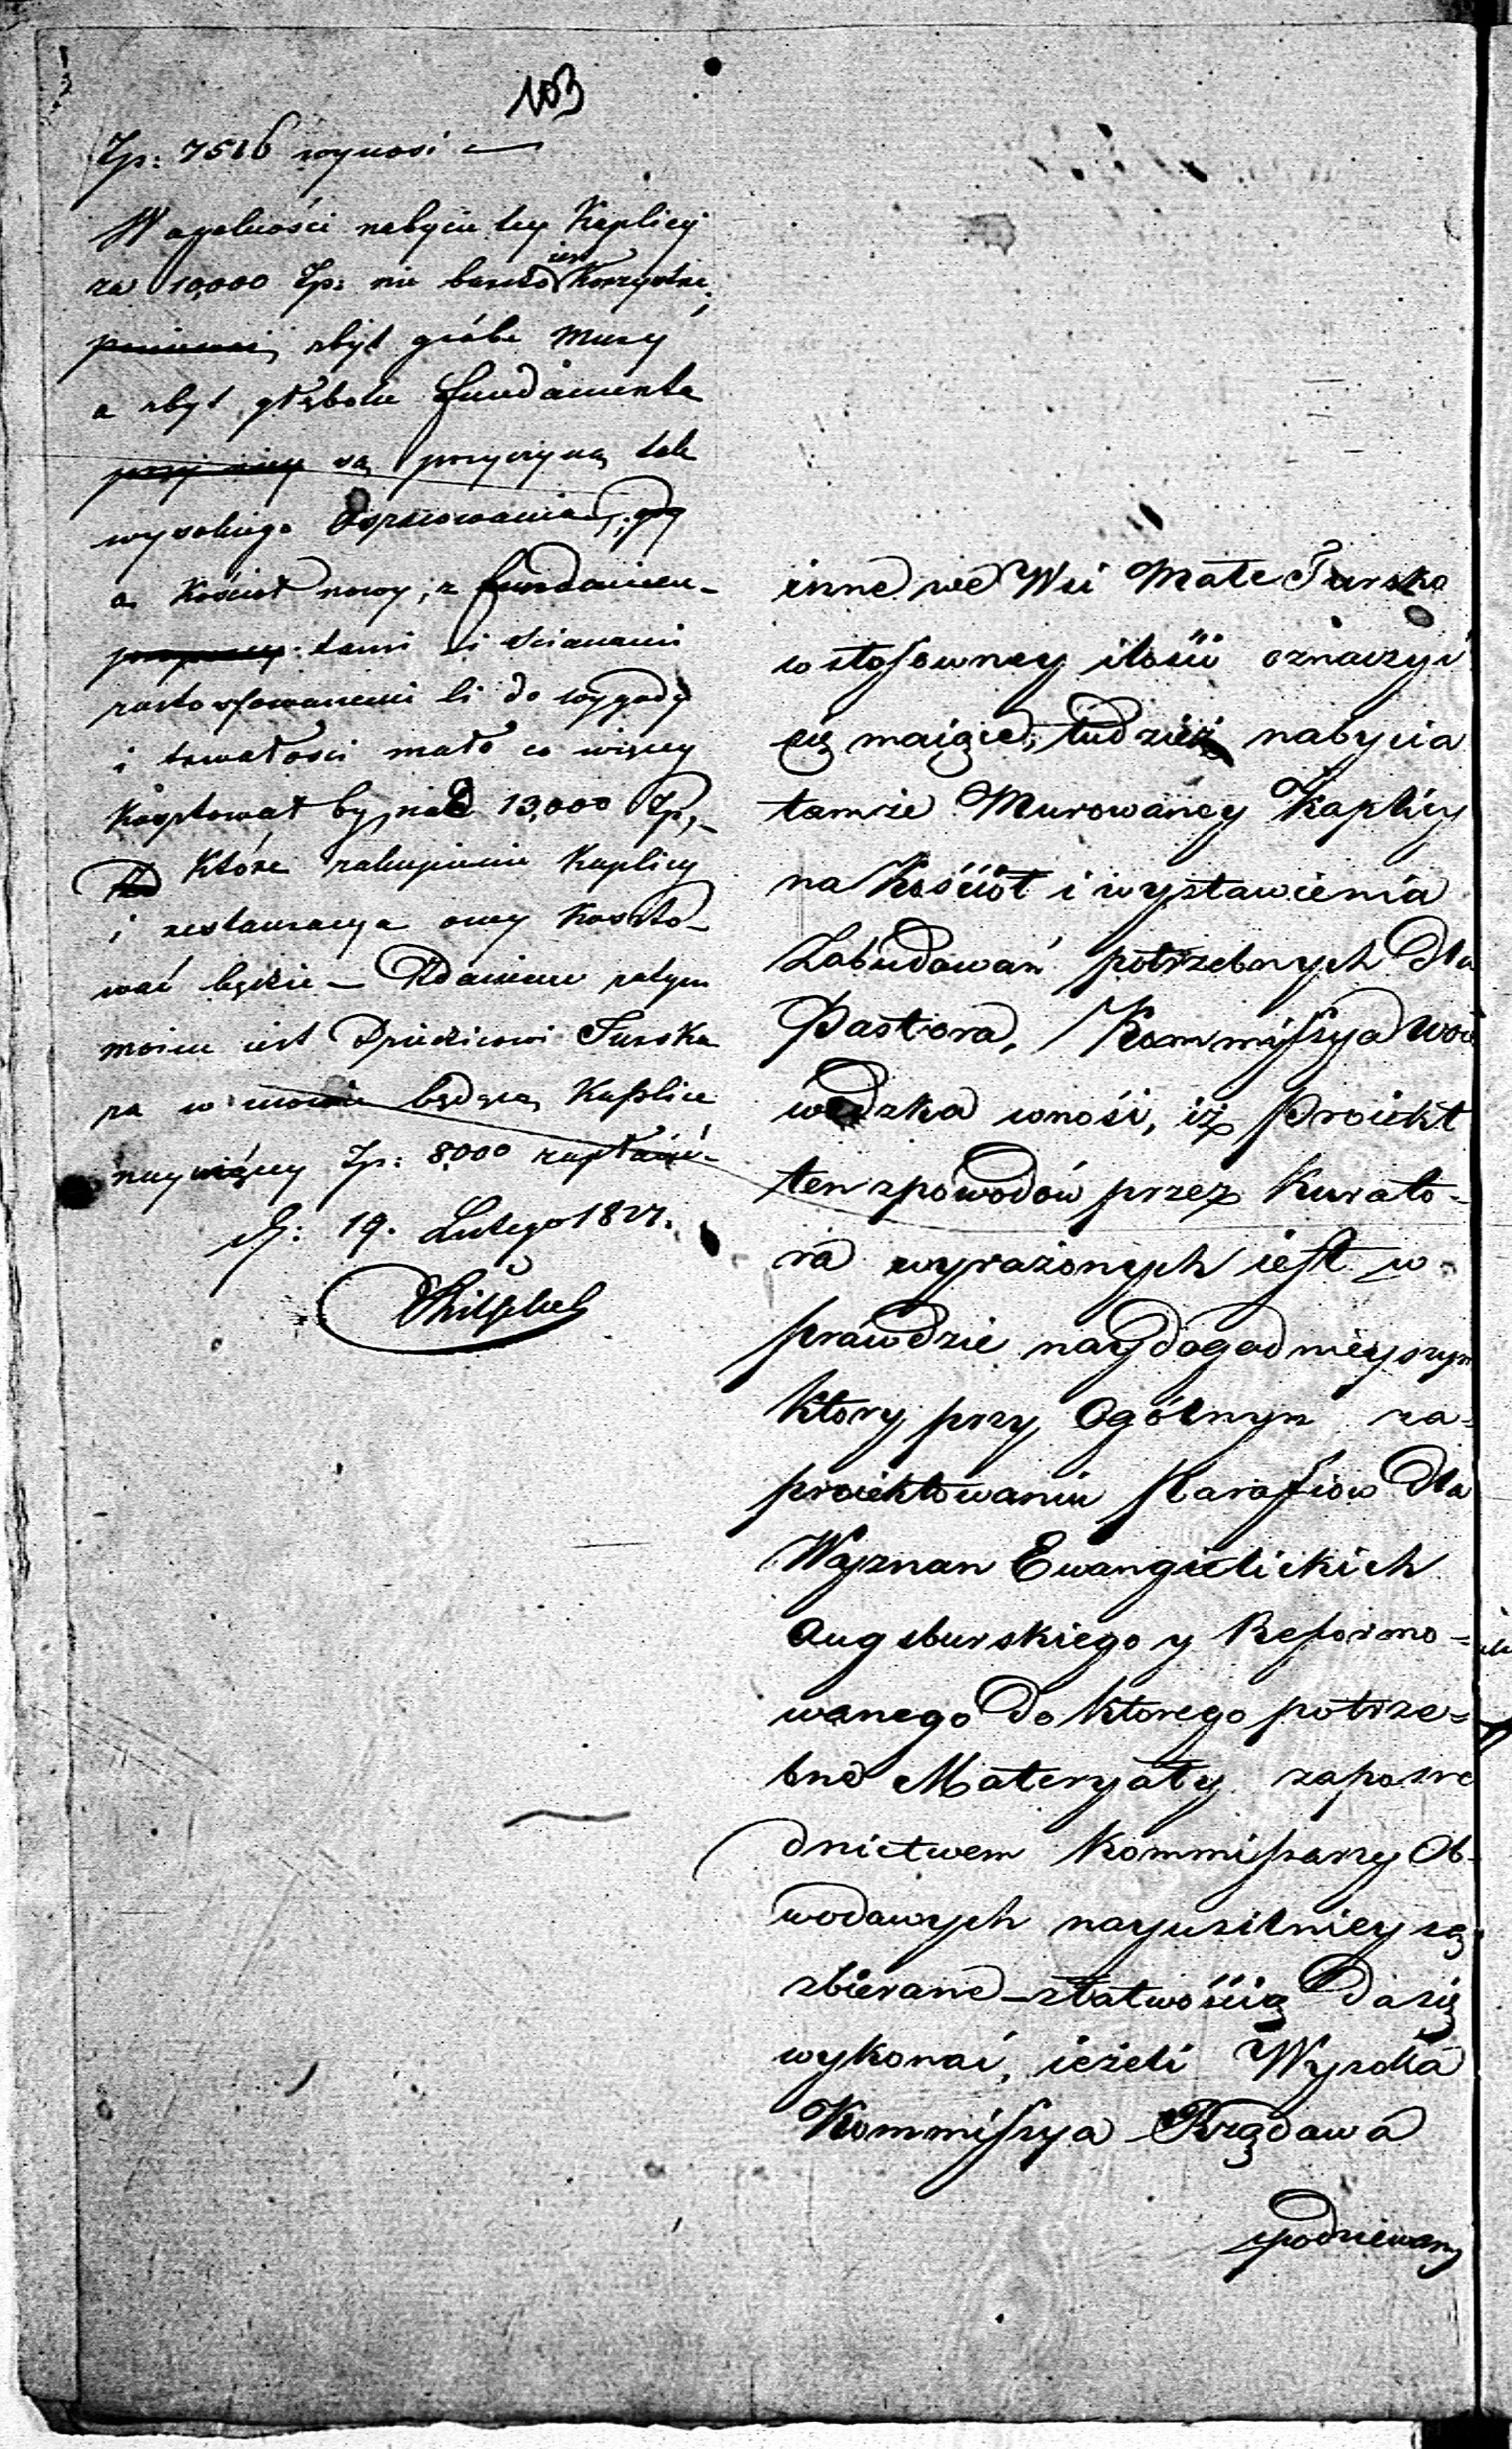 103
Zp: 7516 wynosi —
W ogolności nabycie tey Kaplicy
za 10,000 Zp: nie bardzo iest Korzystne;
ponieważ zbyt gróbe mury
a zbyt głębokie fundamenta
są przyczyną tak
wysokiego Oszacowania,
a Kościoł nowy, z fundamen-
tami i scianami
zastosowanemi li do wygody
i trwałości mało co więcey
kosztował by nad 13,000 Zp,
które zakupienie Kaplicy
i restauracya owey koszto-
wać będzie — Zdaniem zatym
moim iest Dziedzicowi Turska
za w mowie będącą Kaplice
naywięcey Zp: 8000 zapłacić.
d: 19. Lutego 1827.
inne we Wsi Małe Tursko
w stosowney ilości oznaczyć
się maiące, tudzież nabycia
tamże Murowaney Kaplicy
na Kościół i wystawienia
Zabudowań potrzebnych dla
Pastora, Kommissya Woie
wodzka wnosi, iż Proiekt
ten z powodów przez Kurato-
ra wyrażonych iest w
prawdzie naydogodnieyszym
ktory przy Ogólnym za-
proiektowaniu Parafiów dla
Wyznan Ewangielickich
Augsburskiego y Reformo-
wanego do ktorego potrze-
bne Materyały zaposre
dnictwem Kommissarzy Ob-
wodowych nayusilniey są
zbierane – złatwością da się
wykonać, ieżeli Wysoka
Kommissya Rządowa
spodziewany